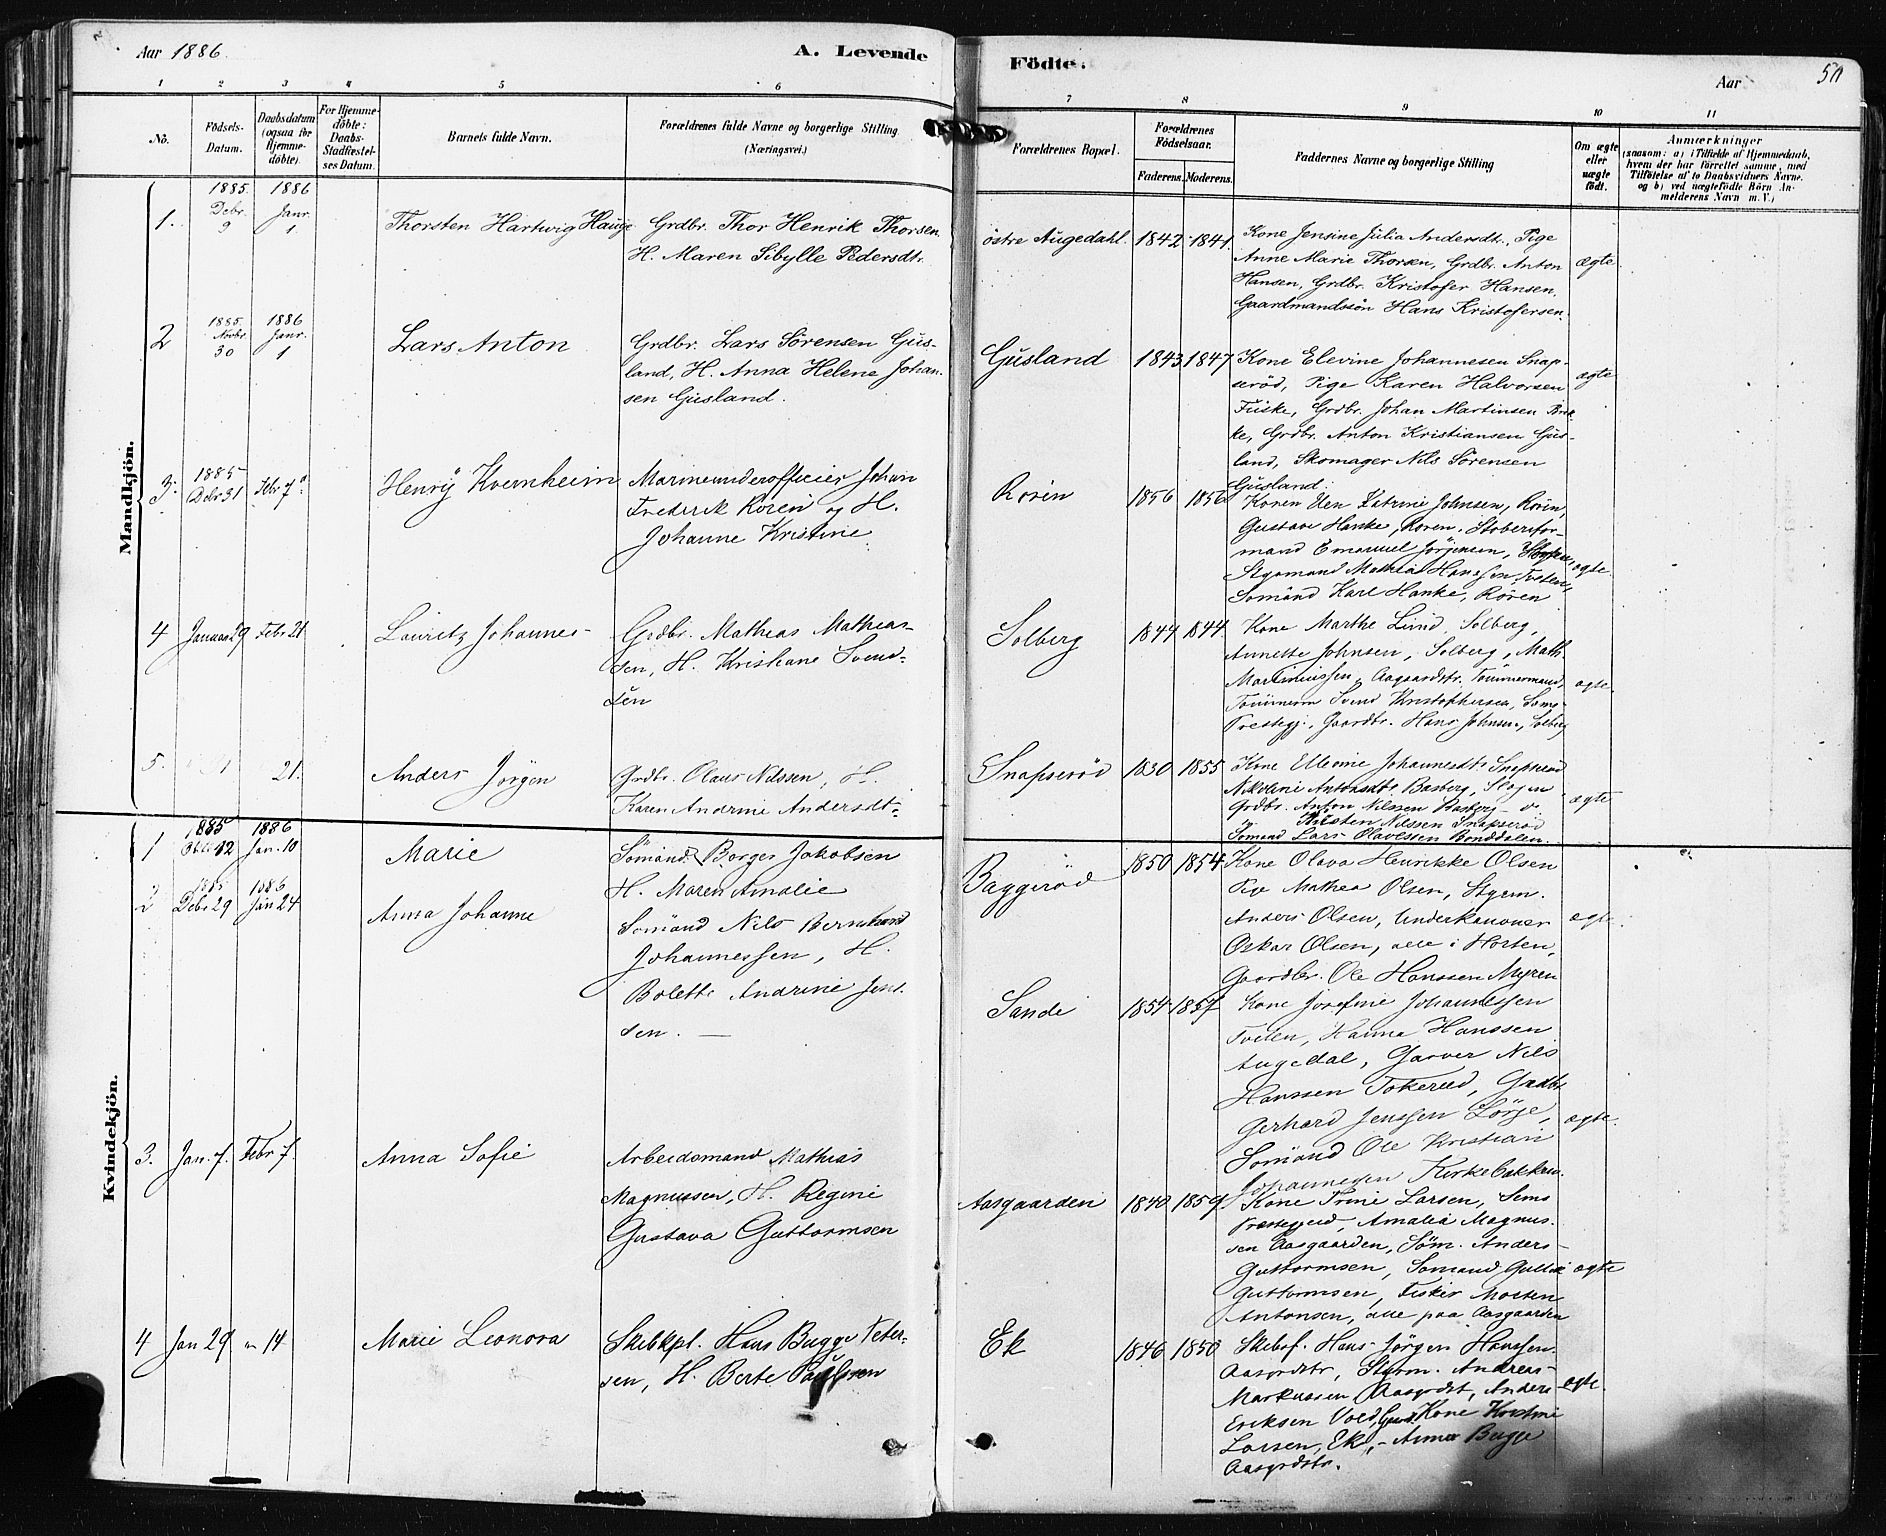 Aar 1886.
A. Levende
Födte.
Aar
50
1 2 3 4 5 6
7 8 9 10 11
No.
Födsels-Datum.
Daabsdatum (ogsaa for Hjemmedöbte).
For Hjemmedöbte: Daabs-Stadfæstelses Datum.
Barnets fulde Navn.
Forældrenes fulde Navne og borgerlige Stilling (Næringsvei.)
Forældrenes Bopæl.
Forældrenes Födselsaar.
Faderens. Moderens.
Faddernes Navne og borgerlige Stilling
Om ægte eller uægte födt.
Anmærkninger
(saasom: a) i Tilfælde af Hjemmedaab,
hvem der har forrettet samme, med
Tilföielse af to Daabsvidners Navne.
og b) ved uægtefödte Börn An-
melderens Navn m. V.)
Mandkjön.
1.
1885. Debr. 9
1886 Janr. 1
Thorsten Hartwig Hauge
Grdbr. Thor Henrik Thorsen
H. Maren Sibylle Pedersdtr.
östre Augedahl.
1842 1841.
Kone Jensine Julia Andersdt., Pige
Anne Marie Thorsen, Grdbr. Anton
Hansen, Grdbr. Kristofer Hansen,
Gaardmandssön Hans Kristofersen.
ægte
2
1885. Novbr. 30
1886 Janr. 1
Lars Anton
Grdbr. Lars Sörensen Gus-
land, H. Anna Helene Johan-
sen Gusland.
Gusland
1843 1847
Kone Elevine Johannesen Snap-
seröd, Pige Karen Halvorsen
Fuske, Grdbr. Johan Martinsen
ke, Grdbr. Anton Kristiansen Gus-
land, Skomager Nils Sörensen
Gusland.
ægte
3.
1885 Debr 31
Febr 7
Henry Kvernheim
Marineunderofficier Johan
Fredrik Roren og H.
Johanne Kristine
Roren
1856 1856
Johnsen, Rören
Gustava Hanke, Roren, Stoberifor-
mand Emanuel Jörgensen,
Styrmand Mathias Hanssen
Sömand Karl Hanke, Rören
ægte.
4
Januar 29
Febr 21
Lauritz Johannes
Grdbr. Mathias Mathias-
sen, H. Kristiane Svend-
sen
Solberg
1844 1844
Kone Marthe Lund, Solberg,
Annette Johnsen, Solberg, Math.
Martiniussen, Aagaardstr. Tömmermand,
Svend Kristophersen, Sems
Prestegj., Gaardbr. Hans Johnsen, Solberg
ægte.
5.
21.
Anders Jörgen
Grdbr. Olaus Nilssen, H.
Karen Andrine Andersdt.
Snapseröd
1830 1855
Kone Ellevine Johannesdt. Snapseröd
Nikoline Antonsdtr. Basberg, Slagen
Grdbr. Anton Nilssen Basberg
Nilssen Snapseröd
Sömand Lars Olavessen Bonddalen.
ægte
Kvindekjön.
1
1885
1886 Jan. 10
Marie
Sömand Borger Jakobsen
H. Maren Amalie
Baggeröd
1850 1854
Kone Olava Henrikke Olsen
Pige Mathea Olsen, Styrm.
Anders Olsen, Underkanoner
Oskar Olsen, alle i Horten,
Gaardbr. Ole Hanssen Myren
ægte.
2
1885 Debr 29
1886 Jan 24
Anna Johanne
Sömand Nils Bernhard
Johannessen, H.
Bolette Andrine Jens-
sen. —
Sande
1854 1857
Kone Josefine Johannessen
Tveten, Hanna Hanssen
Augedal, Garver Nils
Hanssen Tokerud, Grdbr.
Gerhard Jenssen Lörge,
Sömand Ole Kristian
Johannesen Kirkebakken.
ægte.
3.
Jan. 7.
Febr 7.
Anna Sofie
Arbeidsmand Mathias
Magnussen, H. Regine
Gustava Guttormsen
Aasgaarden
1840 1859
Kone Trine Larsen, Sems
Præstegjeld, Amalia Magnus-
sen Aasgaarden, Söm. Anders
Guttormsen, Sömand
Guttormsen, Fisker Morten
Antonsen, alle paa Aasgaarden
ægte
4
Jan 29
" 14
Marie Leonora
Skibkpt. Hans Bugge Peter-
sen, H. Berte Paulsen
Ek
1846 1850
Skibsf. Hans Jörgen Hanssen
Aasgrdstr, Styrm. Andreas
Markussen Aasgrdst, Anders
Eriksen Vold, Kone
Larsen, Ek, Anna Bugge
Aasgrdstr.
ægte.